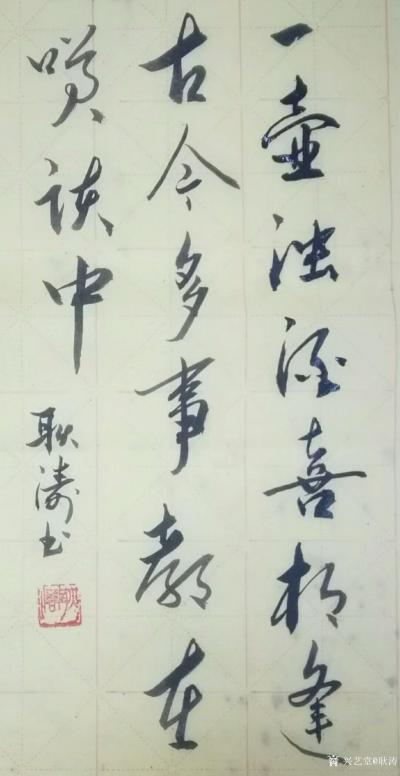 一壶浊酒喜相逢
古今多事都在
笑谈中
耿涛书
兴艺堂@耿涛